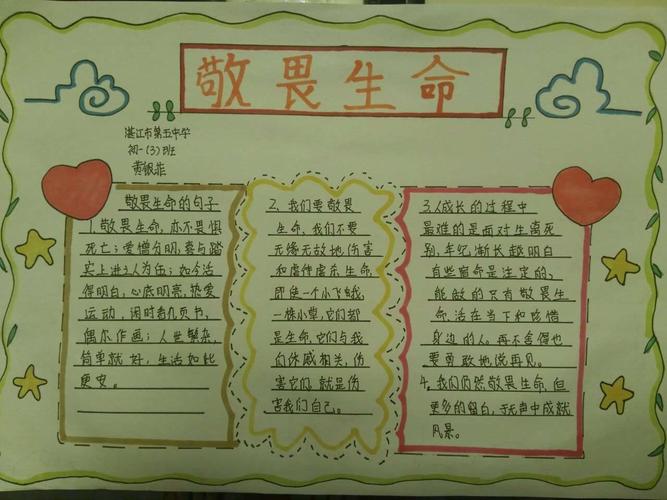 敬畏生命
湛江市第五中学
初一(3)班
黄银菲
敬畏生命的句子
1.敬畏生命,亦不畏惧
死亡;爱憎分明,喜与踏
实上进之人为伍;如今活
得明白,心底明亮,热爱
运动,闲时看几页书,
偶尔作画;人世繁杂,
简单就好,生活如此
更安。
2、我们要敬畏
生命,我们不要
无缘无故地,伤害
和虐待虐杀生命,
即使一个小飞蛾,
一株小草,它们都
是生命,它们与我
们休戚相关,伤
害它们,就是伤
害我们自己。
3.人成长的过程中
最难的是面对生离死
别,年纪渐长越明白
有些宿命是注定的、
能做的只有敬畏生
命,活在当下和珍惜
身边的人。再不舍得也
要勇敢地说再见。
4、我们仍然敬畏生命,但
更多的留白,于无声中成就
风景。